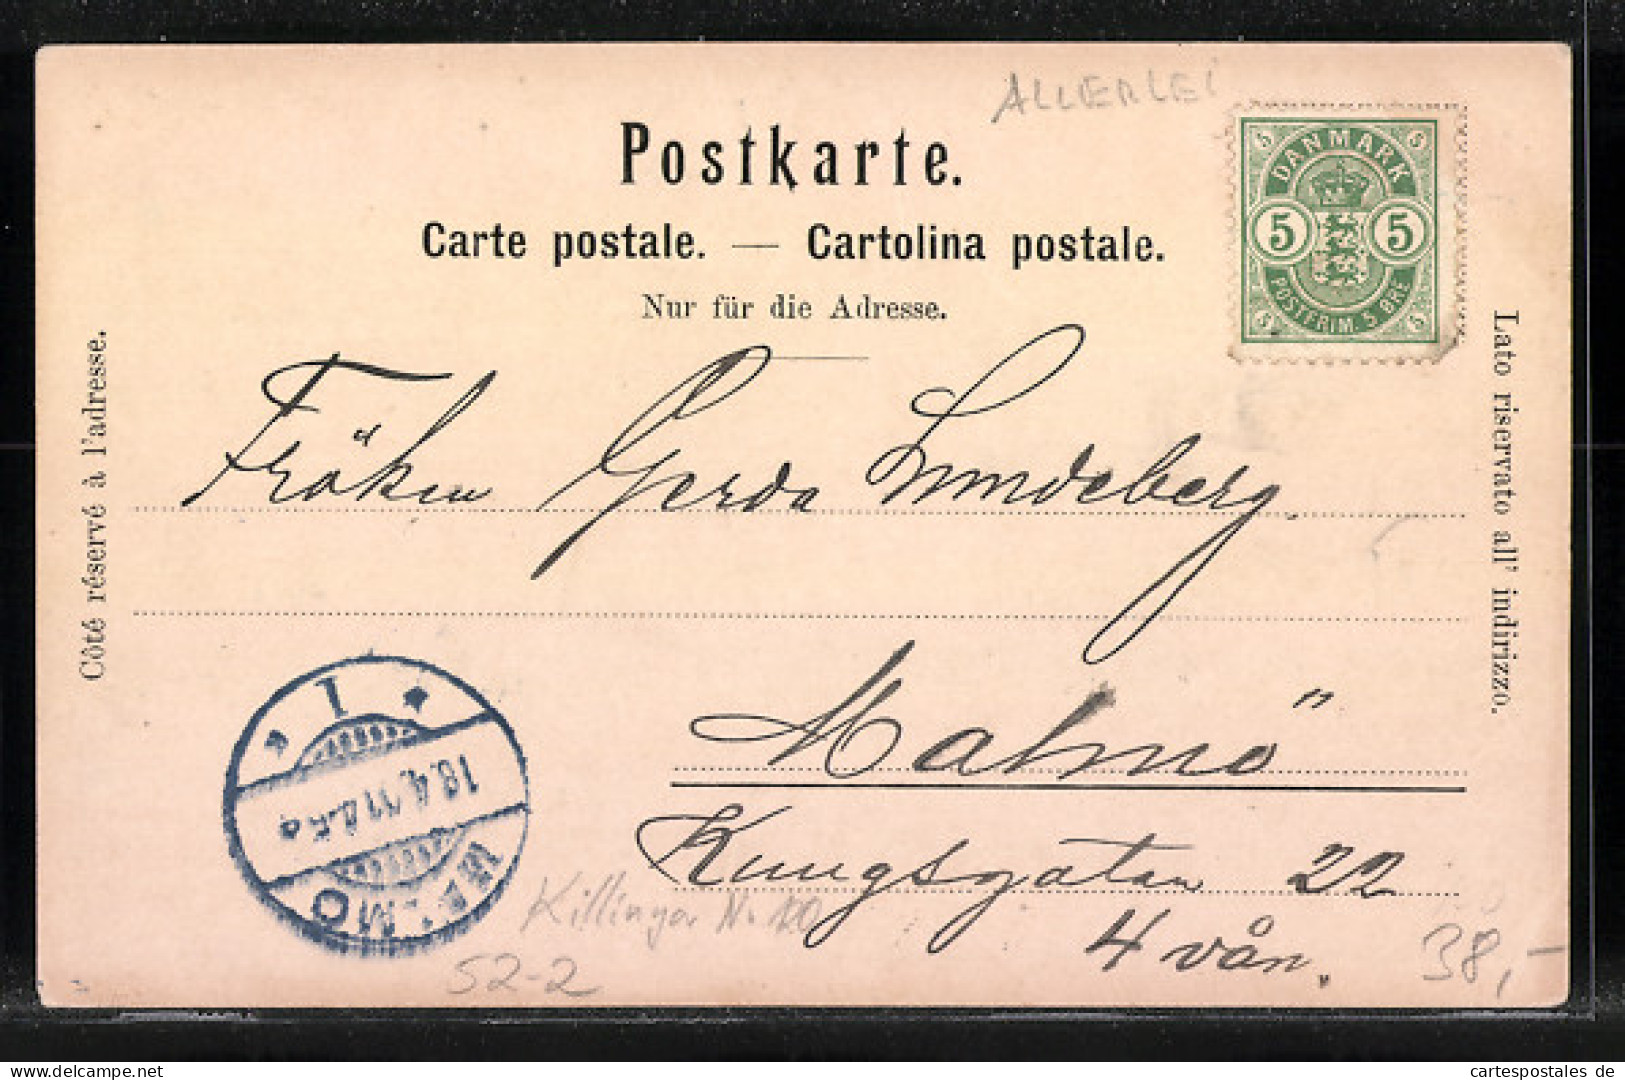 ALLERLEI
Postkarte.
Carte postale. — Cartolina postale.
Nur für die Adresse.
DANMARK
5 5
POSTFRIM. 5 ØRE
5 5 5 5
Côté réservé à l'adresse.
Lato riservato all' indirizzo.
Fröken Gerda Lundeberg.
Malmö
Kungsgatan 22
4 vån.
1
MALMÖ
Killinger Nr. 100
52-2
38,-
cartespostales de